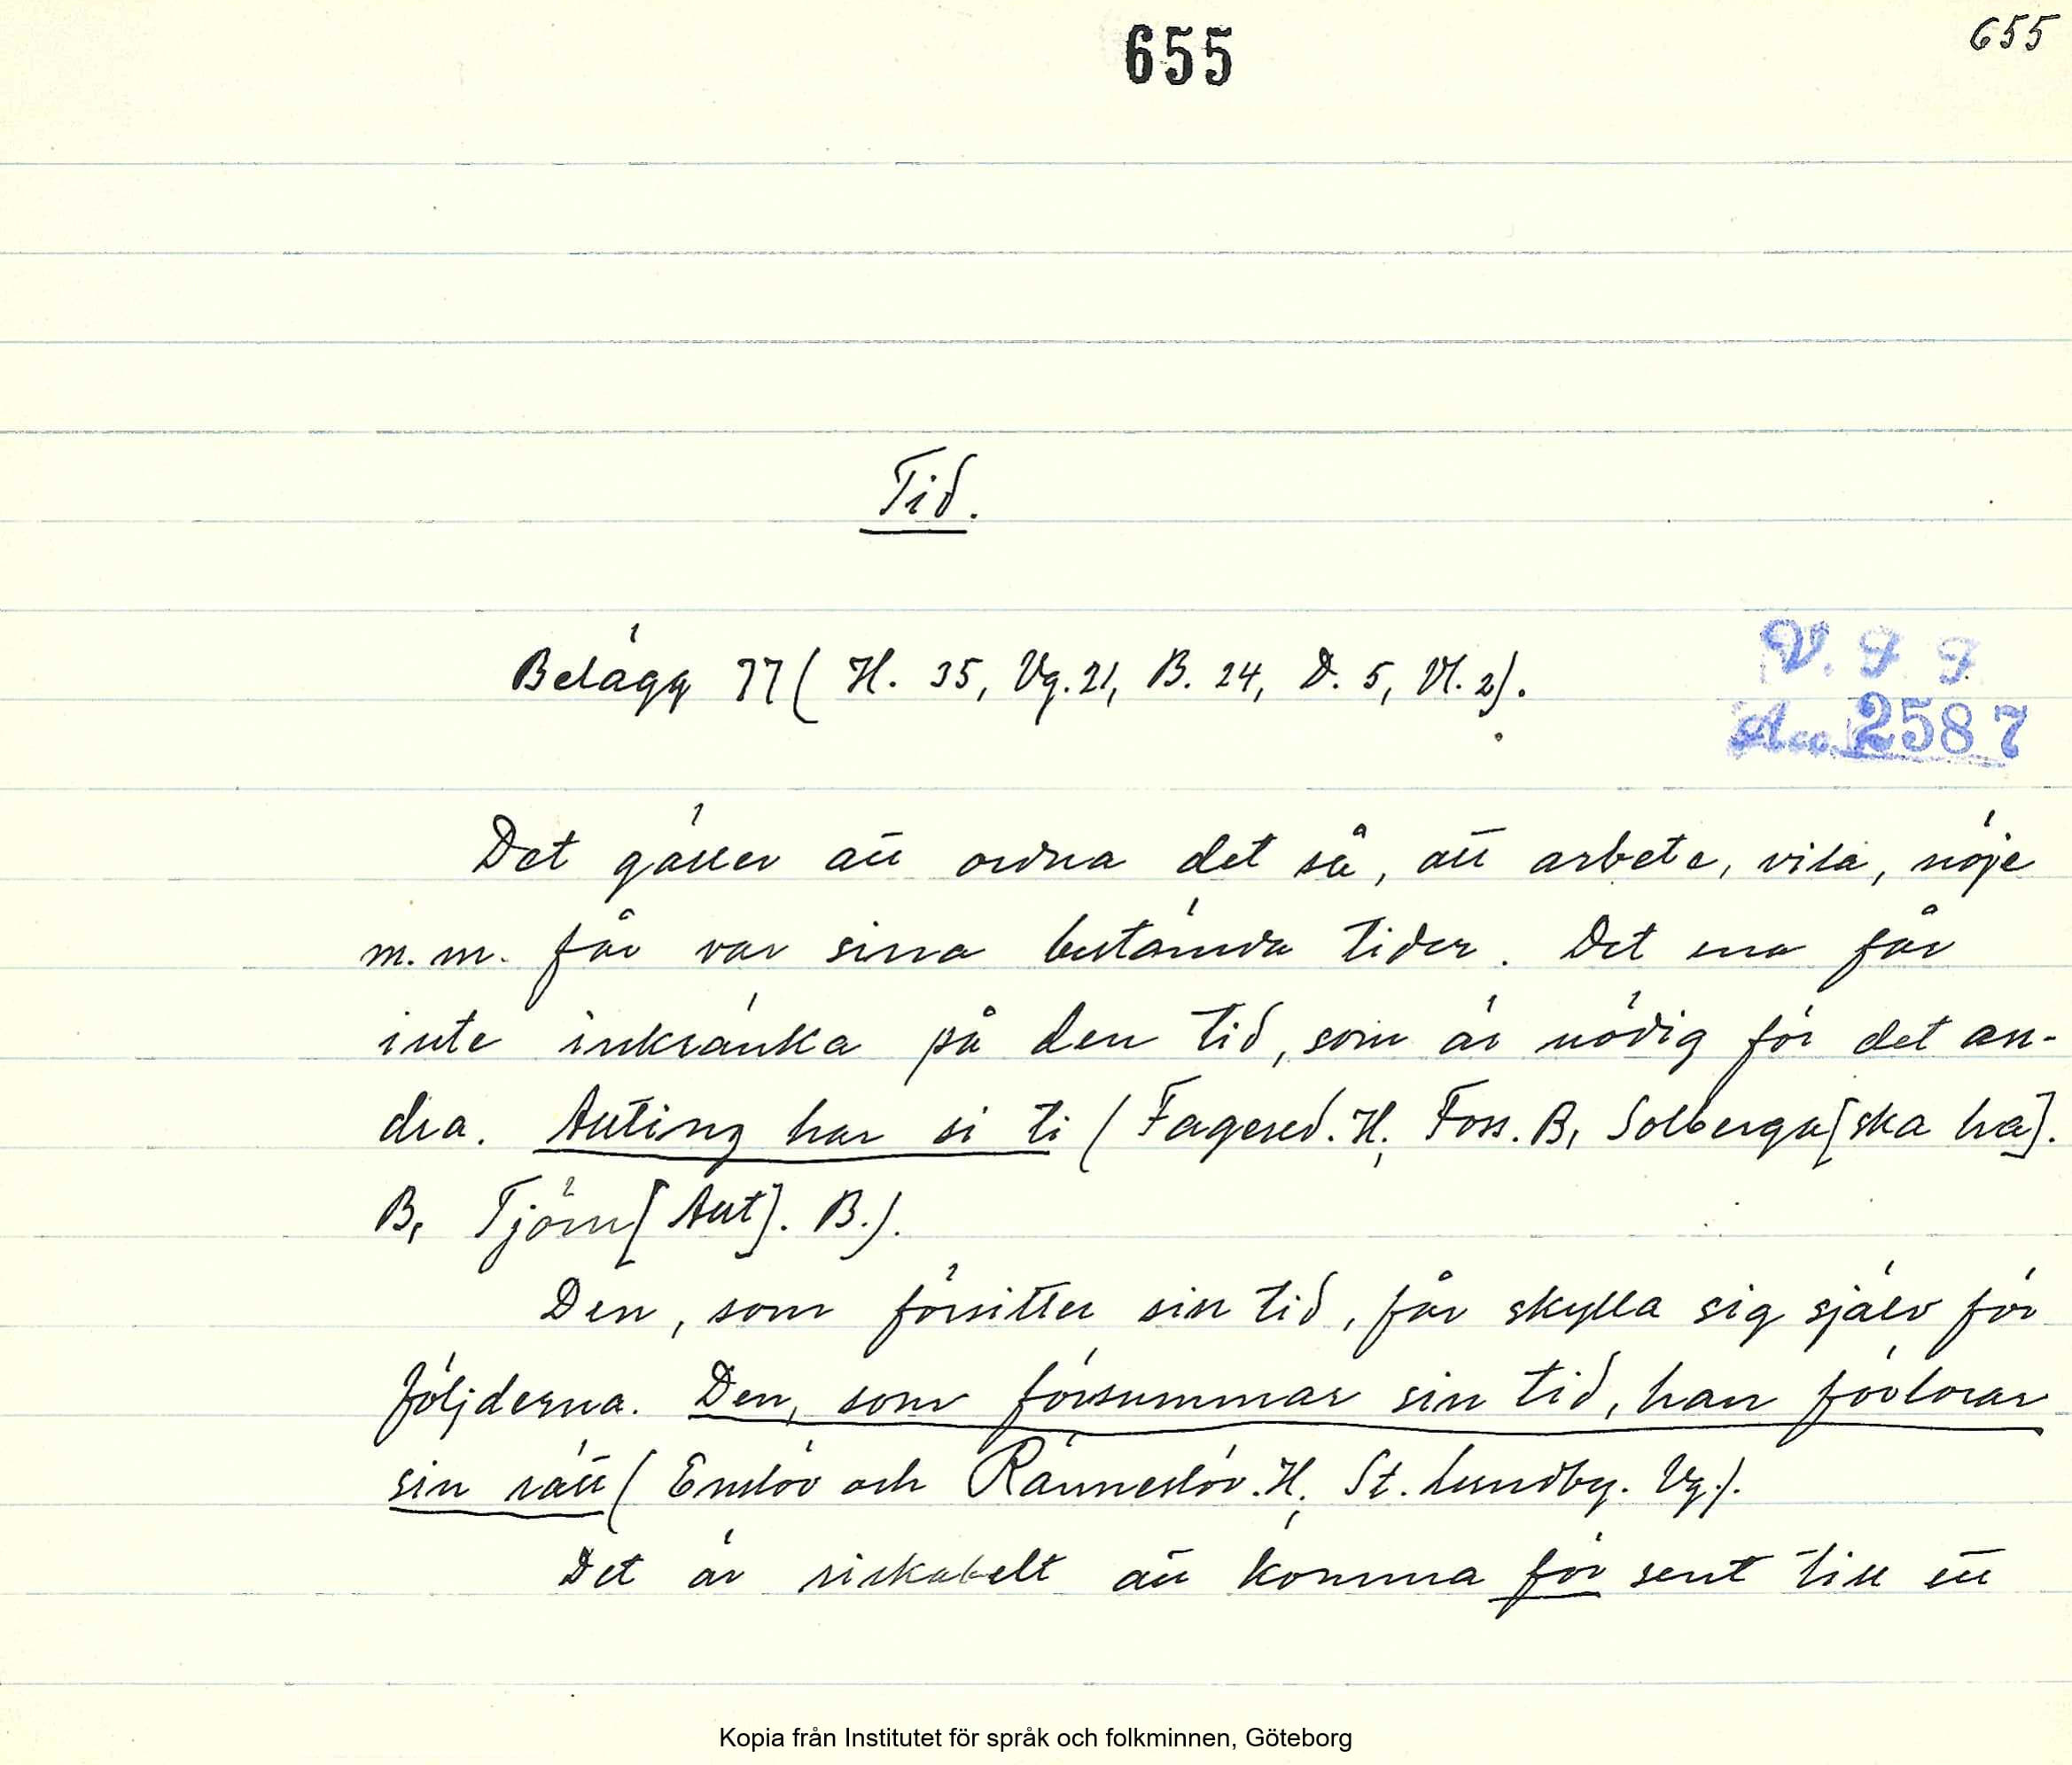 655
655
Tid.
Belägg 77 (H. 35, Vg. 21, B. 24, D. 5, Vl. 2).
V. F. F.
Acc. 2587
Det gäller att ordna det så, att arbete, vila, nöje
m.m. får var sina bestämda tider. Det ena får
inte inkränkta på den tid, som är nödig för det an-
dra. Allting har si ti (Fagered. H; Foss. B, Solberga [ska ha].
B, Tjörn [Allt]. B.).
Den, som försitter sin tid, får skylla sig själv för
följderna. Den, som försummar sin tid, han förlorar
sin rätt (Enslöv och Ränneslöv. H; St. Lundby. Vg.).
Det är riskabelt att komma för sent till ett
Kopia från Institutet för språk och folkminnen, Göteborg